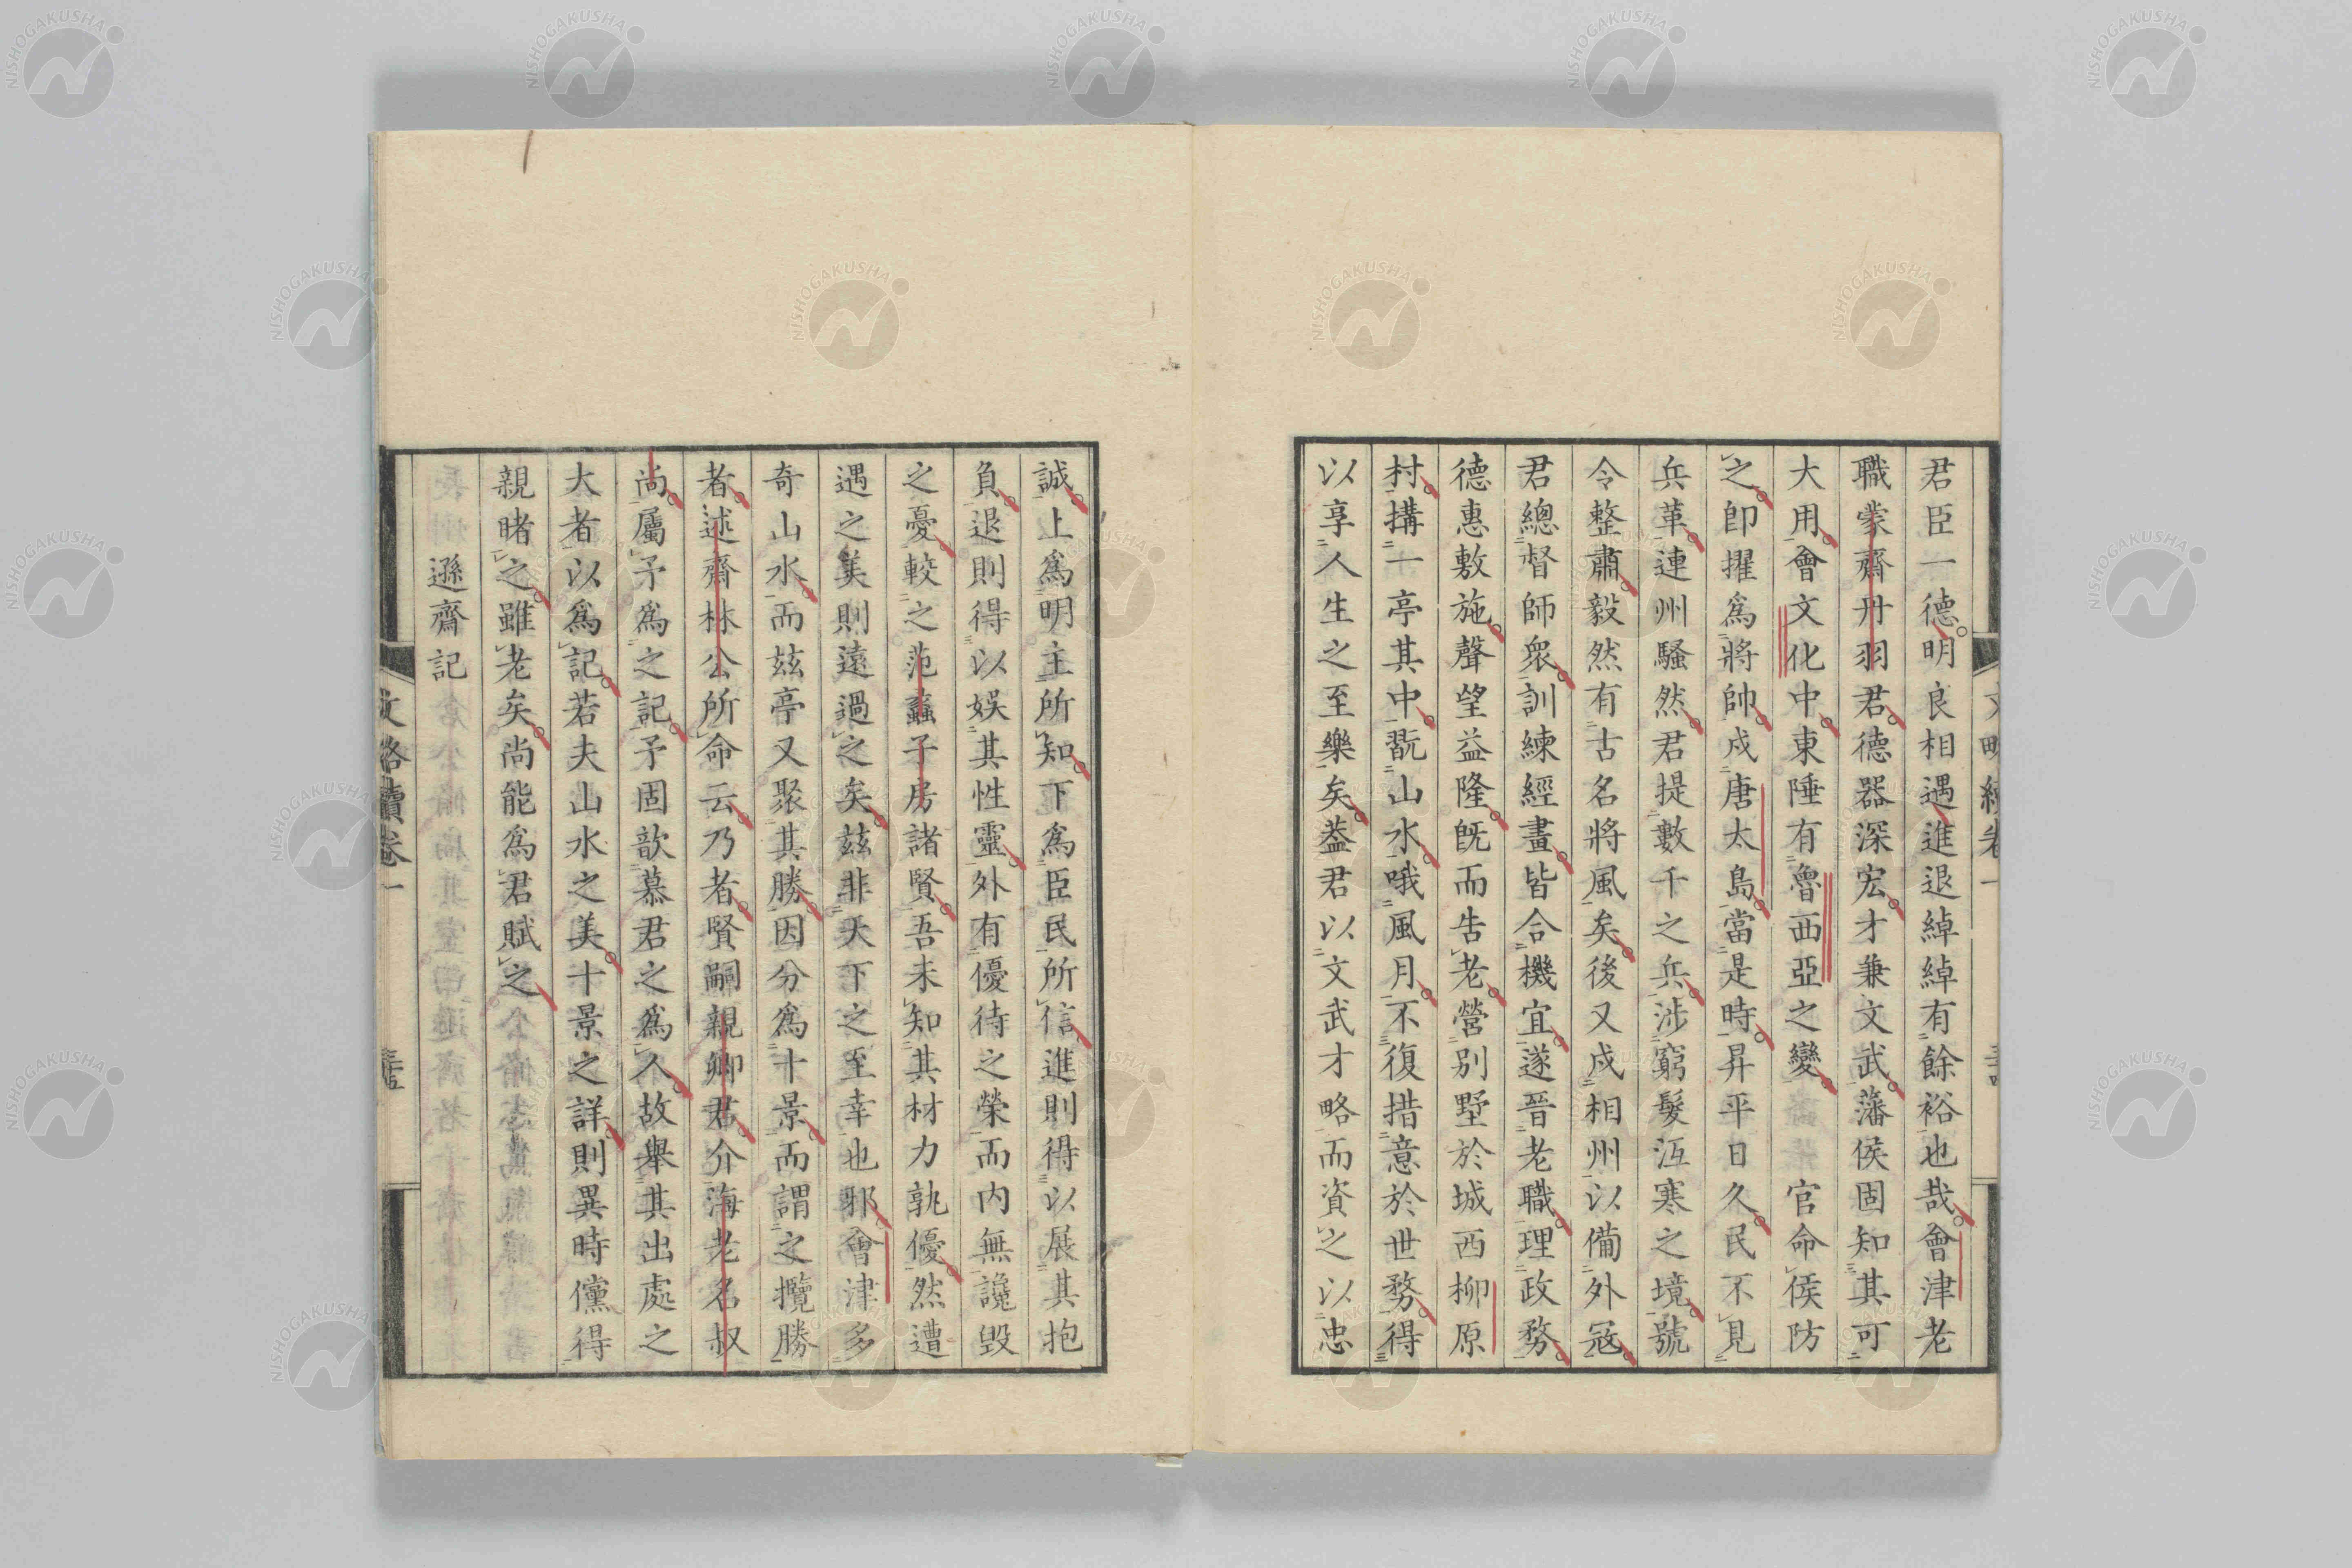 君臣一德明良相遇進退綽綽有餘裕也哉會津老
職蒙齋丹羽君德器深宏才兼文武藩侯固知其可
大用會文化中東陲有魯西亞之變官命侯防
之卽擢爲將帥戍唐太島當是時昇平日久民不見
兵革連州騷然君提數千之兵涉窮髮沍寒之境號
令整肅毅然有古名將風矣後又戍相州以備外寇
君總督師衆訓練經畫皆合機宜遂晉老職理政務
德惠敷施聲望益隆旣而告老營别墅於城西柳原
村搆一亭其中翫山水哦風月不復措意於世務得
以享人生之至樂矣葢君以文武才略而資之以忠
誠上爲明主所知下爲臣民所信進則得以展其抱
負退則得以娛其性靈外有優待之榮而内無讒毀
之憂較之范蠡子房諸賢吾未知其材力孰優然遭
遇之美則遠過之矣茲非天下之至幸也邪會津多
奇山水而茲亭又聚其勝因分爲十景而謂之攬勝
者述齋林公所命云乃者賢嗣親卿君介海老名叔
尚屬予爲之記予固歆慕君之爲人故舉其出處之
大者以爲記若夫山水之美十景之詳則異時儻得
親睹之雖老矣尚能爲君賦之
遜齋記
文略續卷一
NISHOGAKUSHA